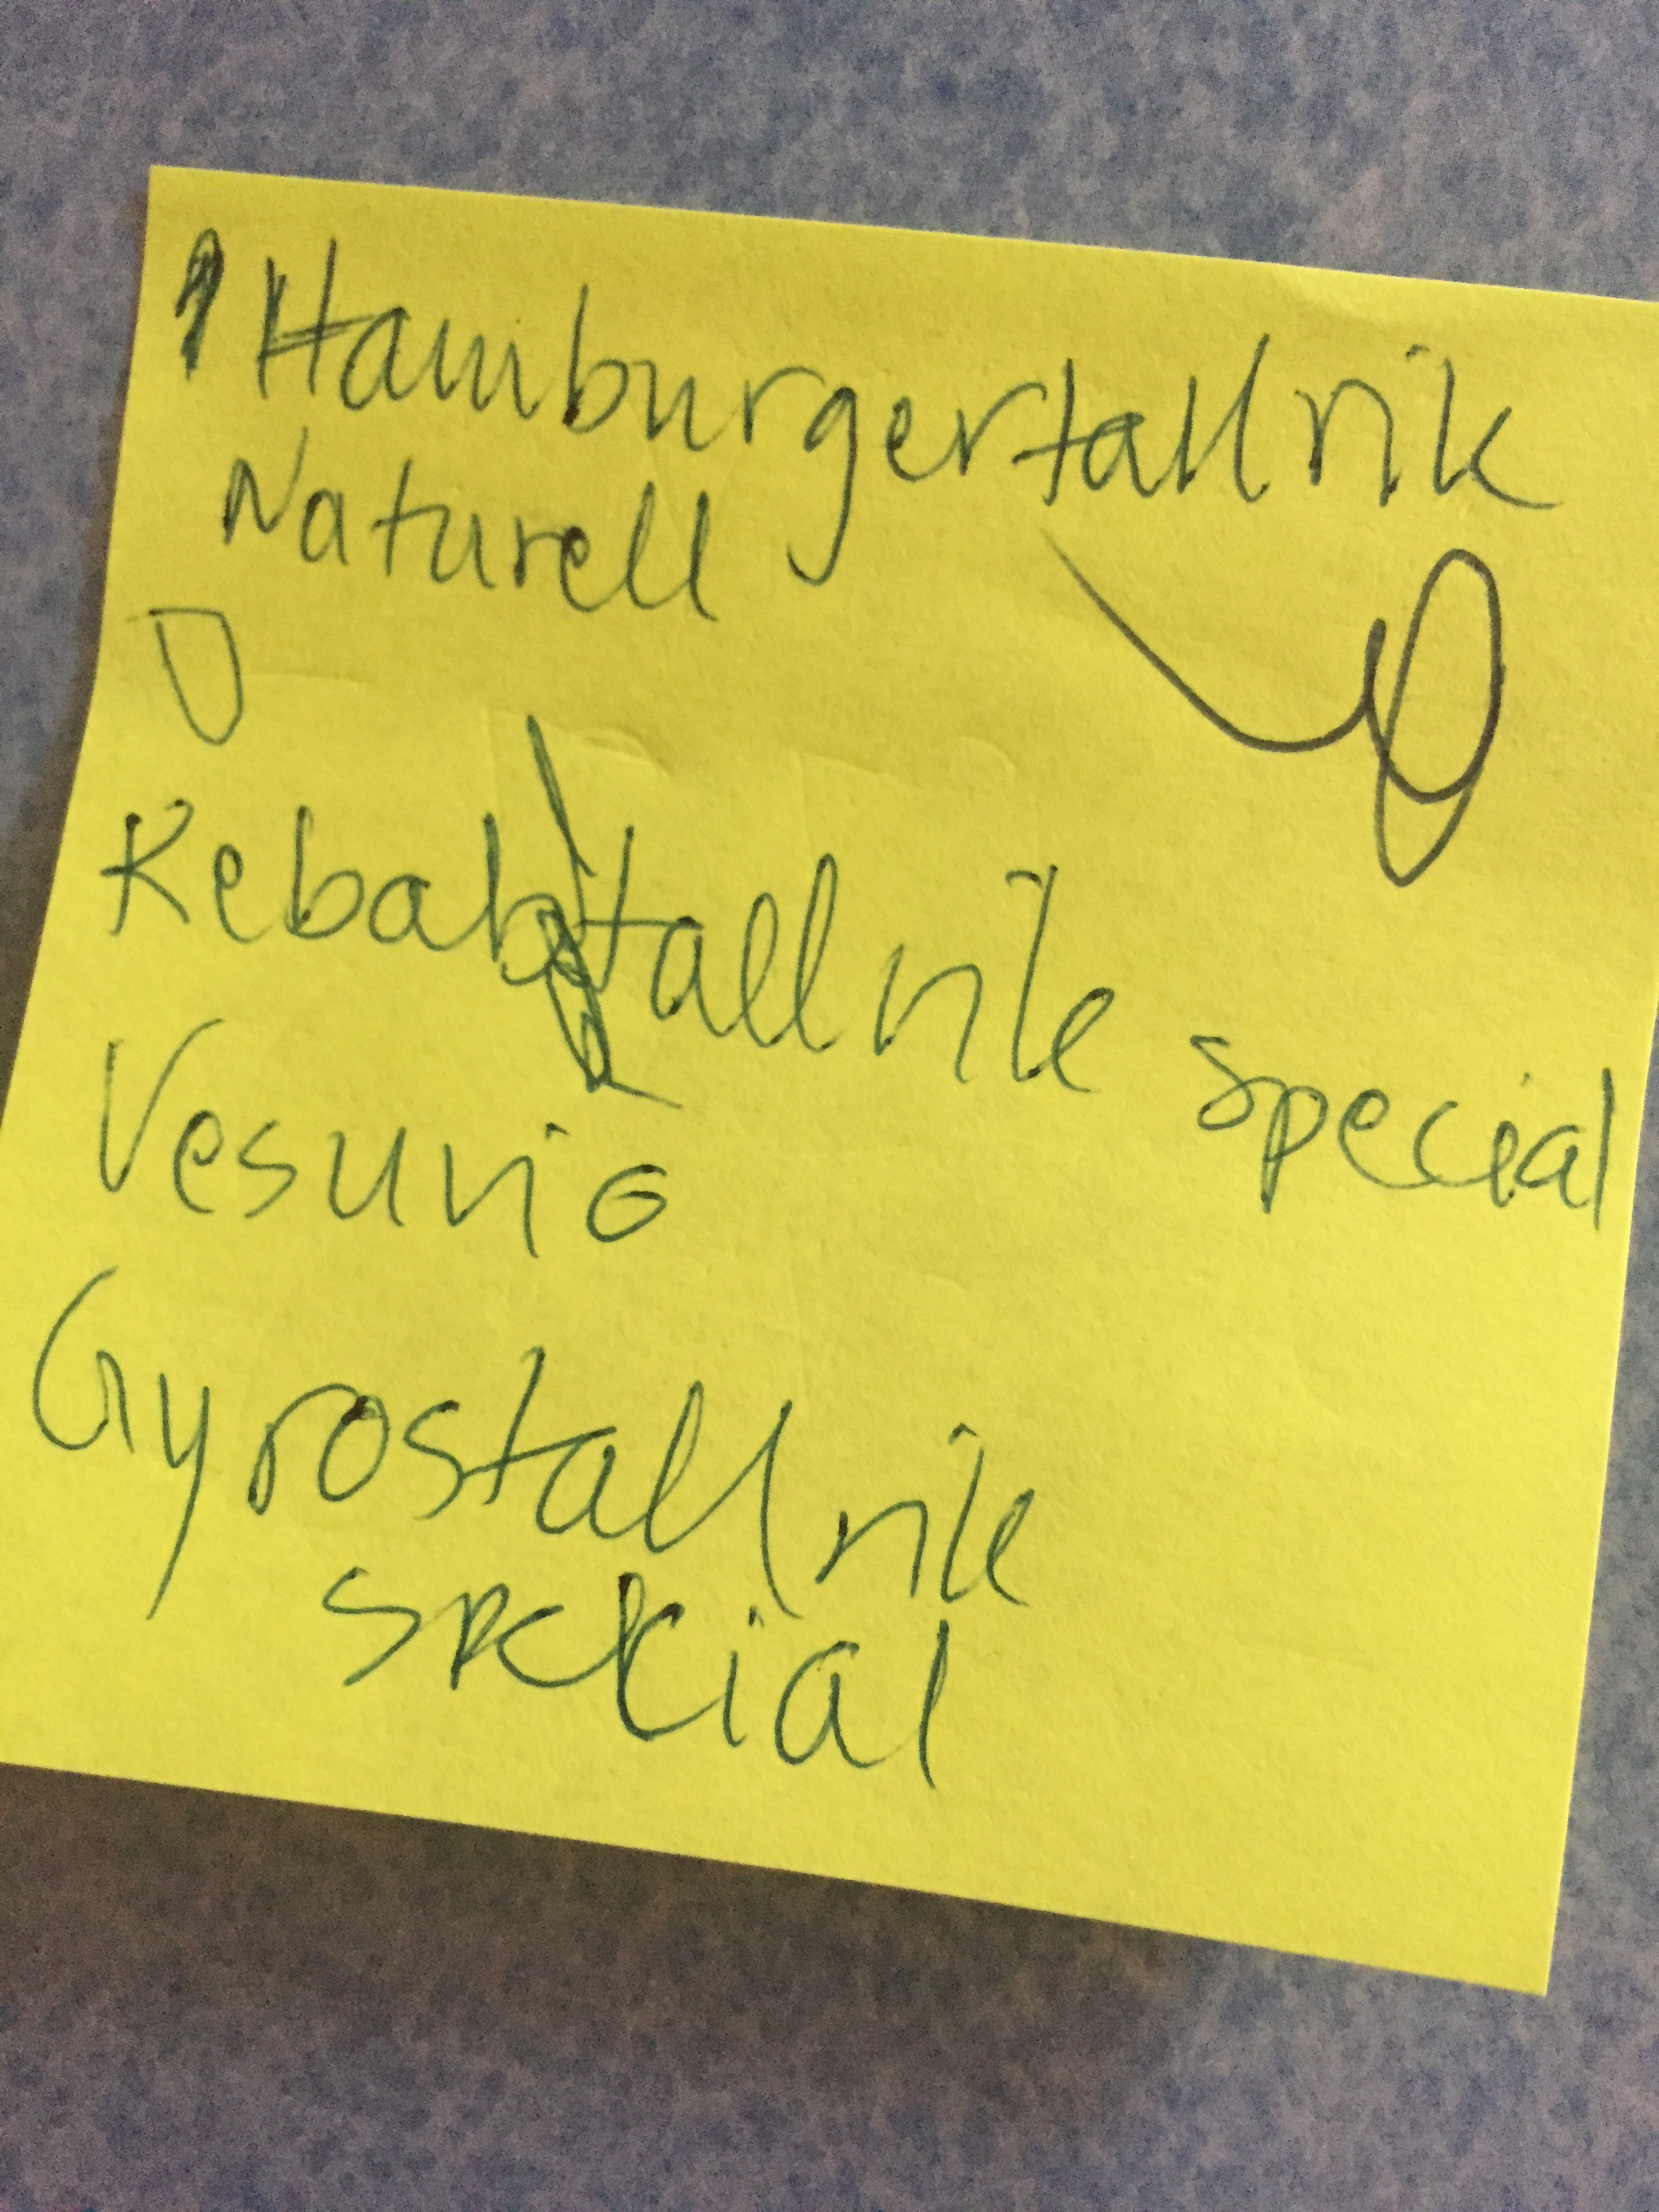 1 Hamburgertallrik
Naturell
Kebabtallrik special
Vesuvio
Gyrostallrik
special